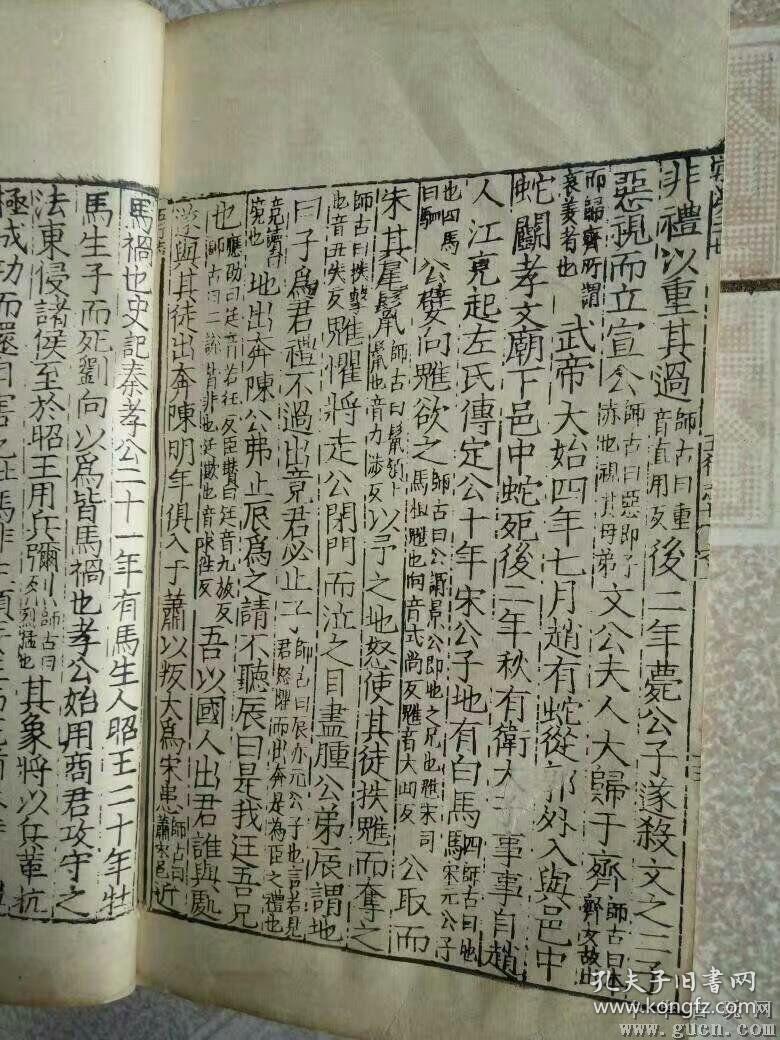 非禮以重其過師古曰重音直用反後二年薨公子遂殺文之二子
惡視而立宣公師古曰惡即子赤也視其母弟文公夫人大歸于齊師古曰本齊女故出
而歸齊所謂哀姜者也武帝大始四年七月趙有蛇從郭外入與邑中
蛇鬭孝文廟下邑中蛇死後二年秋有衛太子事事自趙
人江充起左氏傳定公十年宋公子地有白馬四師古曰地宋元公子
也四馬曰駟公嬖向魋欲之師古曰公謂景公即地之兄也魋宋司馬桓魋也向音式尚反魋音大回反公取而
朱其尾鬛師古曰鬛領上鬛也音力涉反以予之地怒使其徒抶魋而奪之
師古曰抶擊也音丑失反魋懼將走公閉門而泣之目盡腫公弟辰謂地
曰子為君禮不過出竟君必止子師古曰辰亦元公子也言若見君怒懼而出奔是為臣之禮也
竟讀地出奔陳公弗止辰為之請不聽辰曰是我迋吾兄
也應劭曰迋音若狂反臣瓚曰迋音九放反師古曰二說皆非也迋欺也音求往反吾以國人出君誰與處
遂與其徒出奔陳明年俱入于蕭以叛大為宋患師古曰蕭宋邑近
馬禍也史記秦孝公二十一年有馬生人昭王二十年牡
馬生子而死劉向以為皆馬禍也孝公始用商君攻守之
法東侵諸侯至於昭王用兵彌烈師古曰烈猛也其象將以兵革抗
極成功而還自害也牡馬非生類
孔夫子旧书网
www.kongfz.com
www.gucn.com